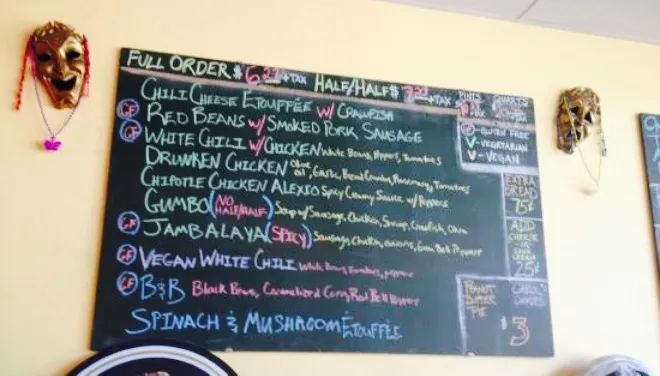 FULL ORDER $6 +TAX HALF/HALF $ +TAX
PINTS QUARTS
CHILI CHEESE ETOUFFÉE W/ CRAWFISH
GF RED BEANS W/ SMOKED PORK SAUSAGE
GF WHITE CHILI W/ CHICKEN White Beans, Peppers, Tomatoes
DRUNKEN CHICKEN Olive oil, Garlic, Bread Crumbs, Rosemary, Tomatoes
CHIPOTLE CHICKEN ALEXIO Spicy Creamy Sauce w/ Peppers
GUMBO (NO HALF/HALF) Soup w/ Sausage, Chicken, Shrimp, Crawfish, Okra
GF JAMBALAYA (SPICY) Sausage, Chicken, onions, Green Bell Pepper
GF VEGAN WHITE CHILI White Beans, Tomatoes, peppers
GF B&B Black Beans, Caramelized Corn, Red Bell Pepper
SPINACH & MUSHROOM ETOUFFÉE
- GLUTEN FREE
V - VEGETARIAN
V - VEGAN
EXTRA
BREAD
75¢
ADD
CHEESE
OR
SOUR
CREAM
25¢
PEANUT
BUTTER
PIE
$3